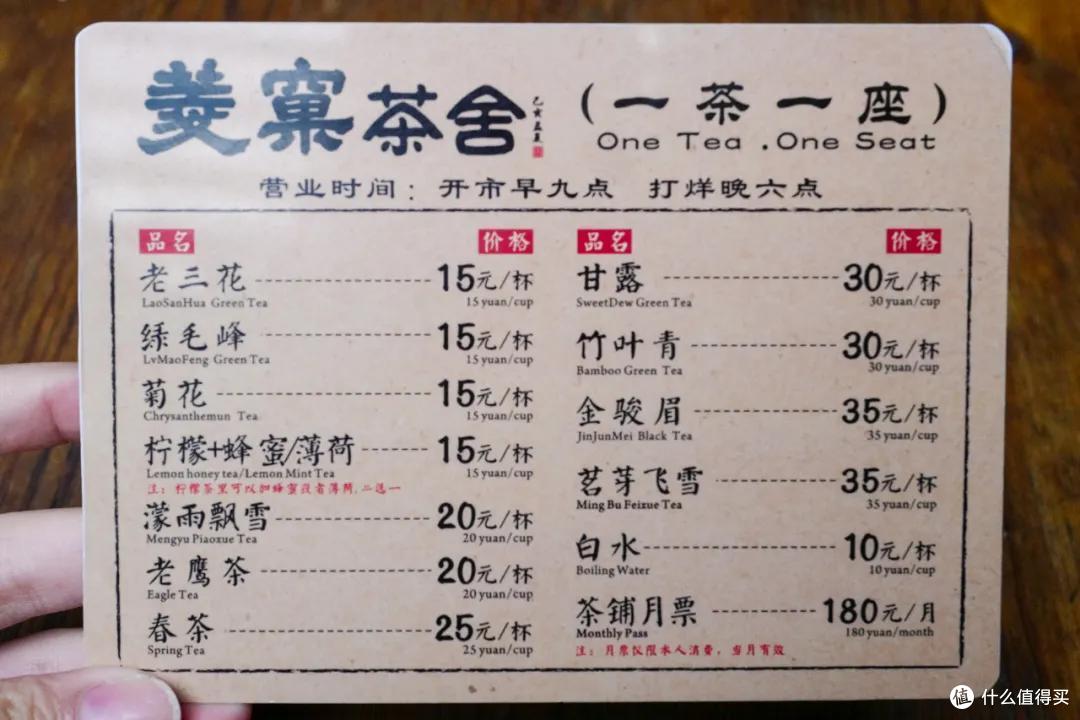 菱窠茶舍
乙亥孟夏
(一茶一座)
One Tea .One Seat
营业时间：开市早九点 打烊晚六点
品名 价格
老三花 15元/杯
LaoSanHua Green Tea 15 yuan/cup
绿毛峰 15元/杯
LvMaoFeng Green Tea 15 yuan/cup
菊花 15元/杯
Chrysanthemun Tea 15 yuan/cup
柠檬+蜂蜜/薄荷 15元/杯
Lemon honey tea/Lemon Mint Tea 15 yuan/cup
注：柠檬茶里可以加蜂蜜或者薄荷,二选一
濛雨飘雪 20元/杯
Mengyu Piaoxue Tea 20 yuan/cup
老鹰茶 20元/杯
Eagle Tea 20 yuan/cup
春茶 25元/杯
Spring Tea 25 yuan/cup
品名 价格
甘露 30元/杯
SweetDew Green Tea 30 yuan/cup
竹叶青 30元/杯
Bamboo Green Tea 30 yuan/cup
金骏眉 35元/杯
JinJunMei Black Tea 35 yuan/cup
茗芽飞雪 35元/杯
Ming Bu Feixue Tea 35 yuan/cup
白水 10元/杯
Boiling Water 10 yuan/cup
茶铺月票 180元/月
Monthly Pass 180 yuan/month
注：月票仅限本人消费，当月有效
值 什么值得买